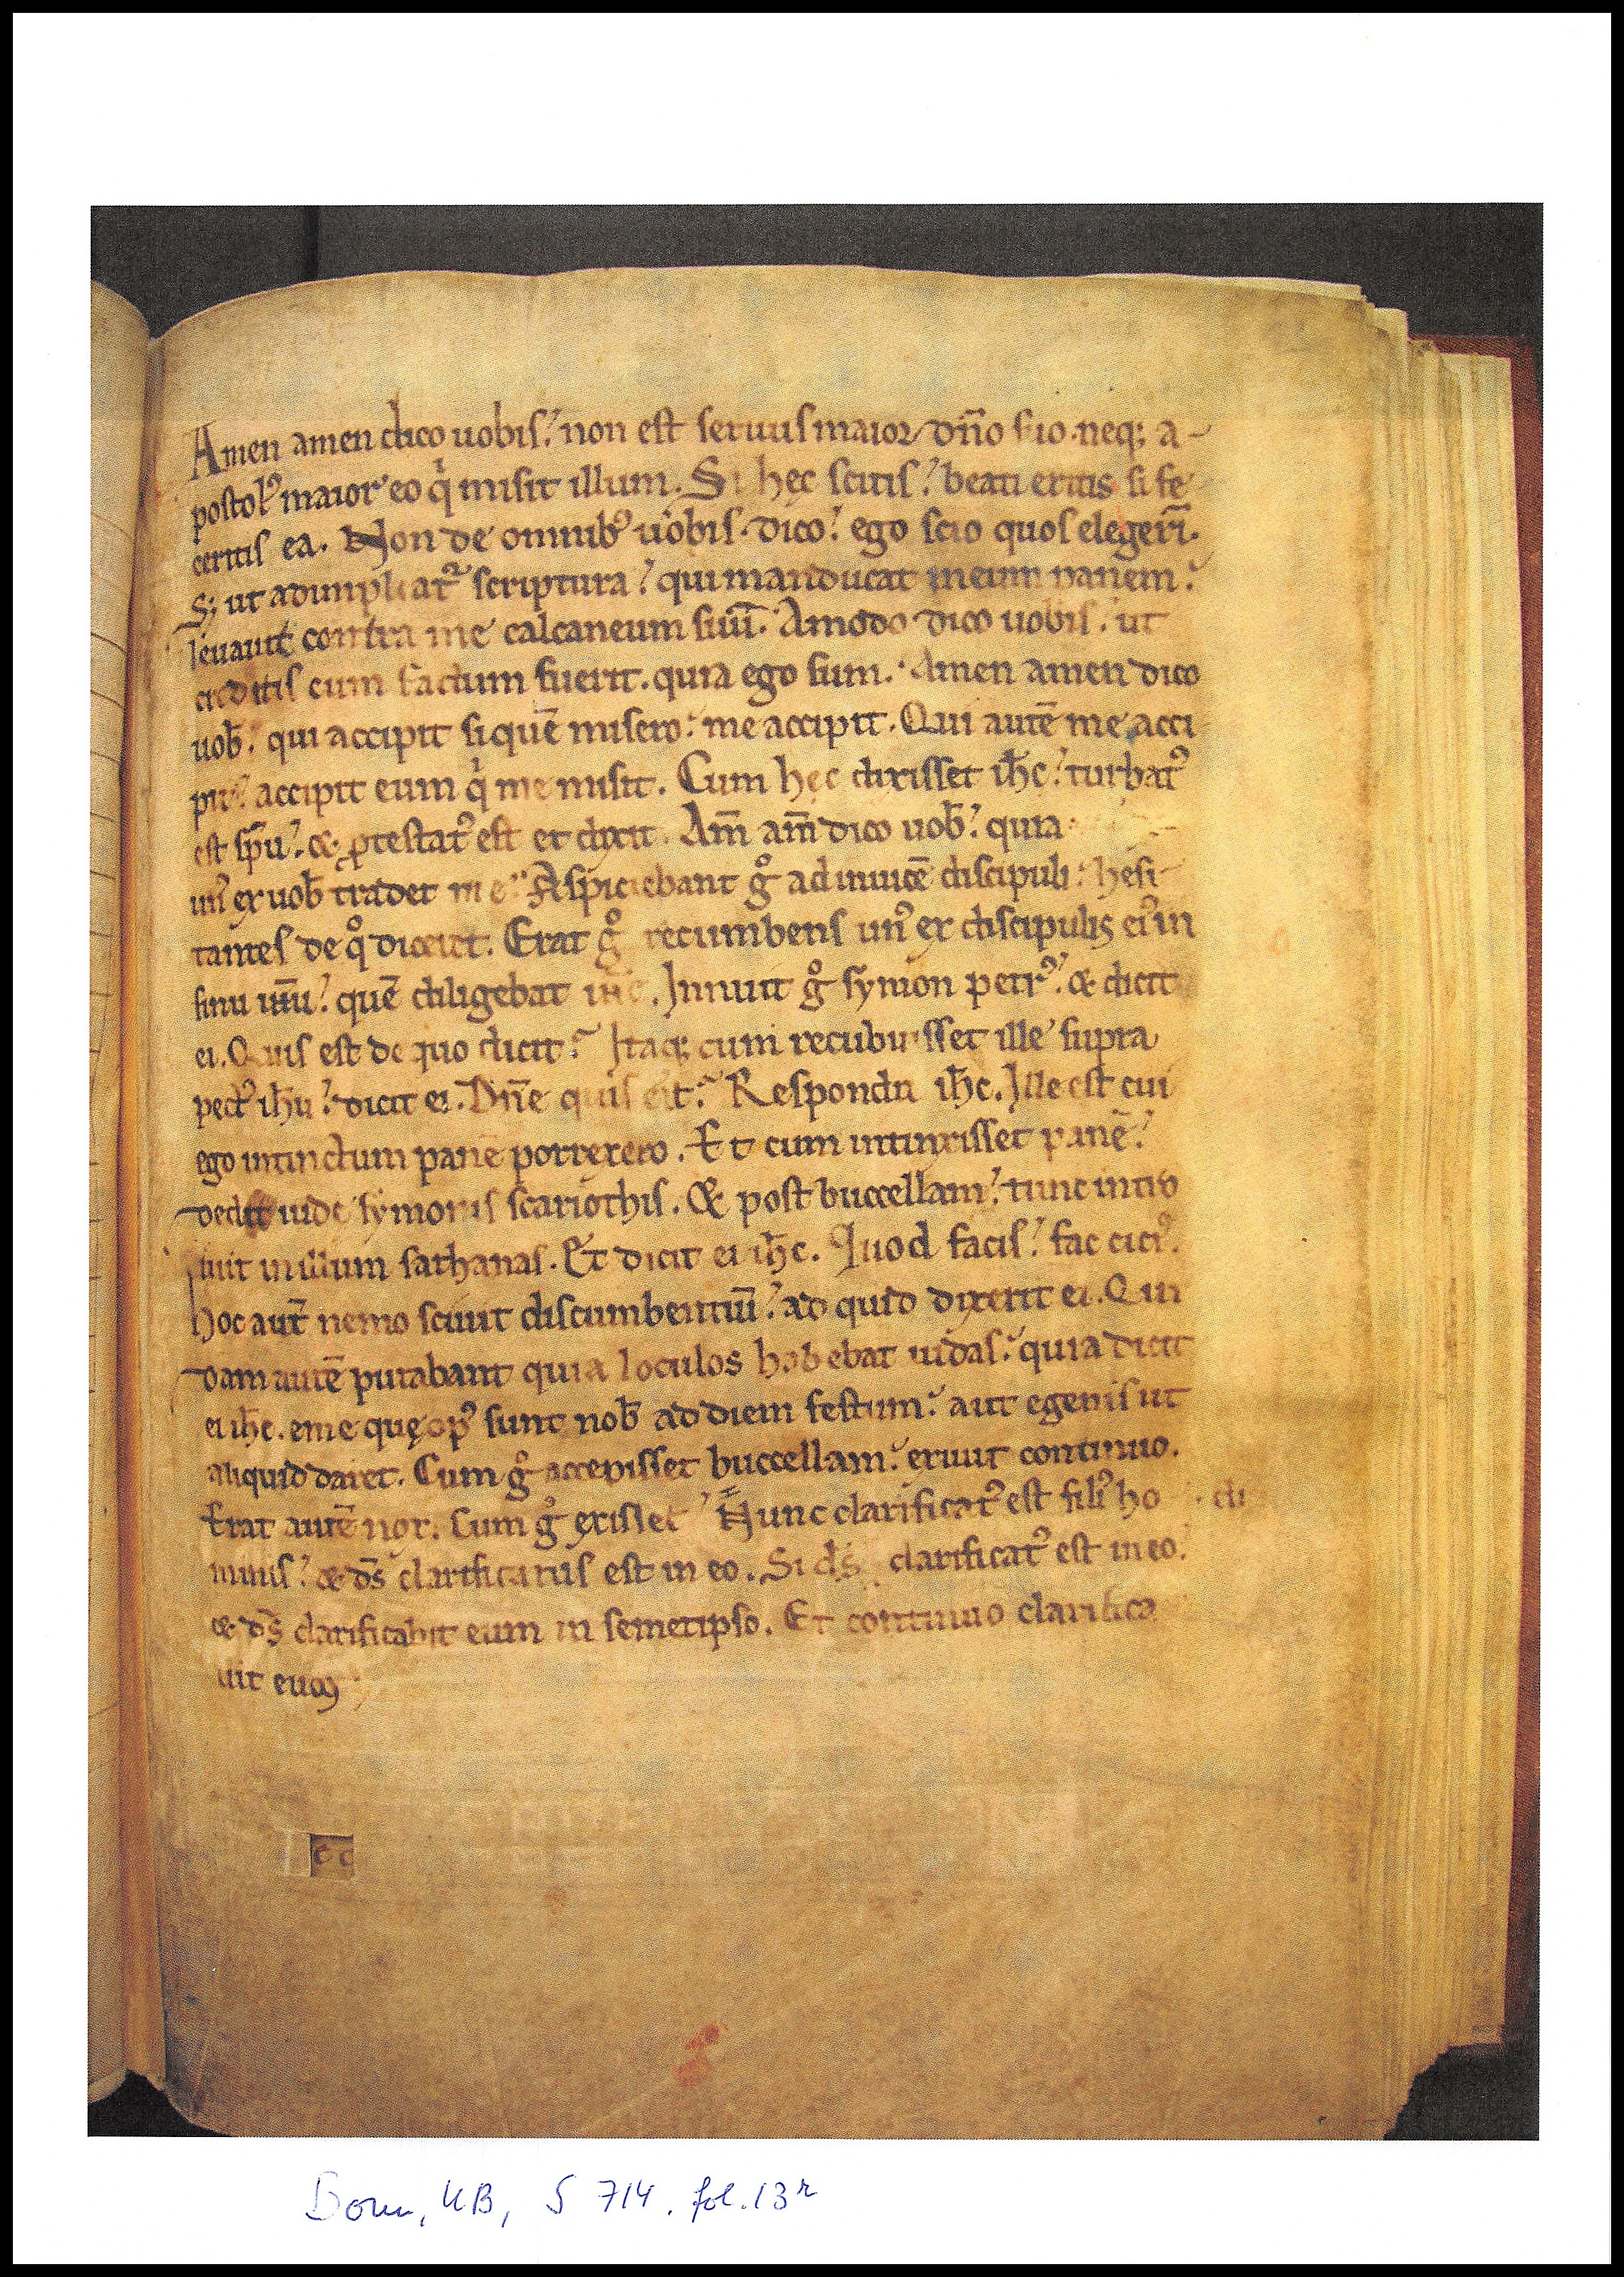 Amen amen dico uobis. non est seruus maior dn̄o suo. neq; a-
postolꝰ maior eo qͥ misit illum. Si hec scitis. beati eritis si fe
ceritis ea. Non de omnibꝰ uobis dico. ego scio quos elegerī.
S; ut adimpleatᷣ scriptura. qui manducat meum panem.
leuauit contra me calcaneum suū. Amodo dico uobis. ut
creditis cum factum fuerit. quia ego sum. Amen amen dico
uob̄. qui accipit si quē misero. me accipit. Qui autē me acci
pit. accipit eum qͥ me misit. Cum hec dixisset ih̄c. turbatꝰ
est sp̄u. & ꝓtestatꝰ est et dixit. Am̄ am̄ dico uob̄. quia
unꝰ ex uob̄ tradet me. Aspiciebant gͦ ad inuicē discipuli. hesi
tantes de qͦ diceret. Erat gͦ recumbens unꝰ ex discipulis eiꝰ in
sinu quē diligebat Innuit gͦ symon petrꝰ. & dicit
ei. Quis est de quo dicit. Itaq; cum recubuisset ille supra
pectꝰ ih̄u. dicit ei. Dn̄e quis est. Respondit ih̄c. Ille est cui
ego intinctum panē porrexero. Et cum intinxisset panē.
dedit iude symonis scariothis. & post buccellam. tunc intro
iuit in illum sathanas. Et dicit ei ih̄c. Quod facis. fac citiꝰ.
hoc aut̄ nemo sciuit discumbentiū. ad quid dixerit ei. Qui
dam autē putabant quia loculos habebat iudas. quia dicit
ei ih̄c. eme quę opꝰ sunt nob̄ ad diem festum. aut egenis ut
aliquid daret. Cum gͦ accepisset buccellam. exiuit continuo.
Erat autē nox. Cum gͦ exisset Nunc clarificatꝰ est filiꝰ ho di
minis. & ds̄ clarificatus est in eo. Si ds̄ clarificatꝰ est in eo.
& ds̄ clarificabit eum in semetipso. Et continuo clarifica
uit eum
cc
Bonn, UB, S 714, fol. 13r